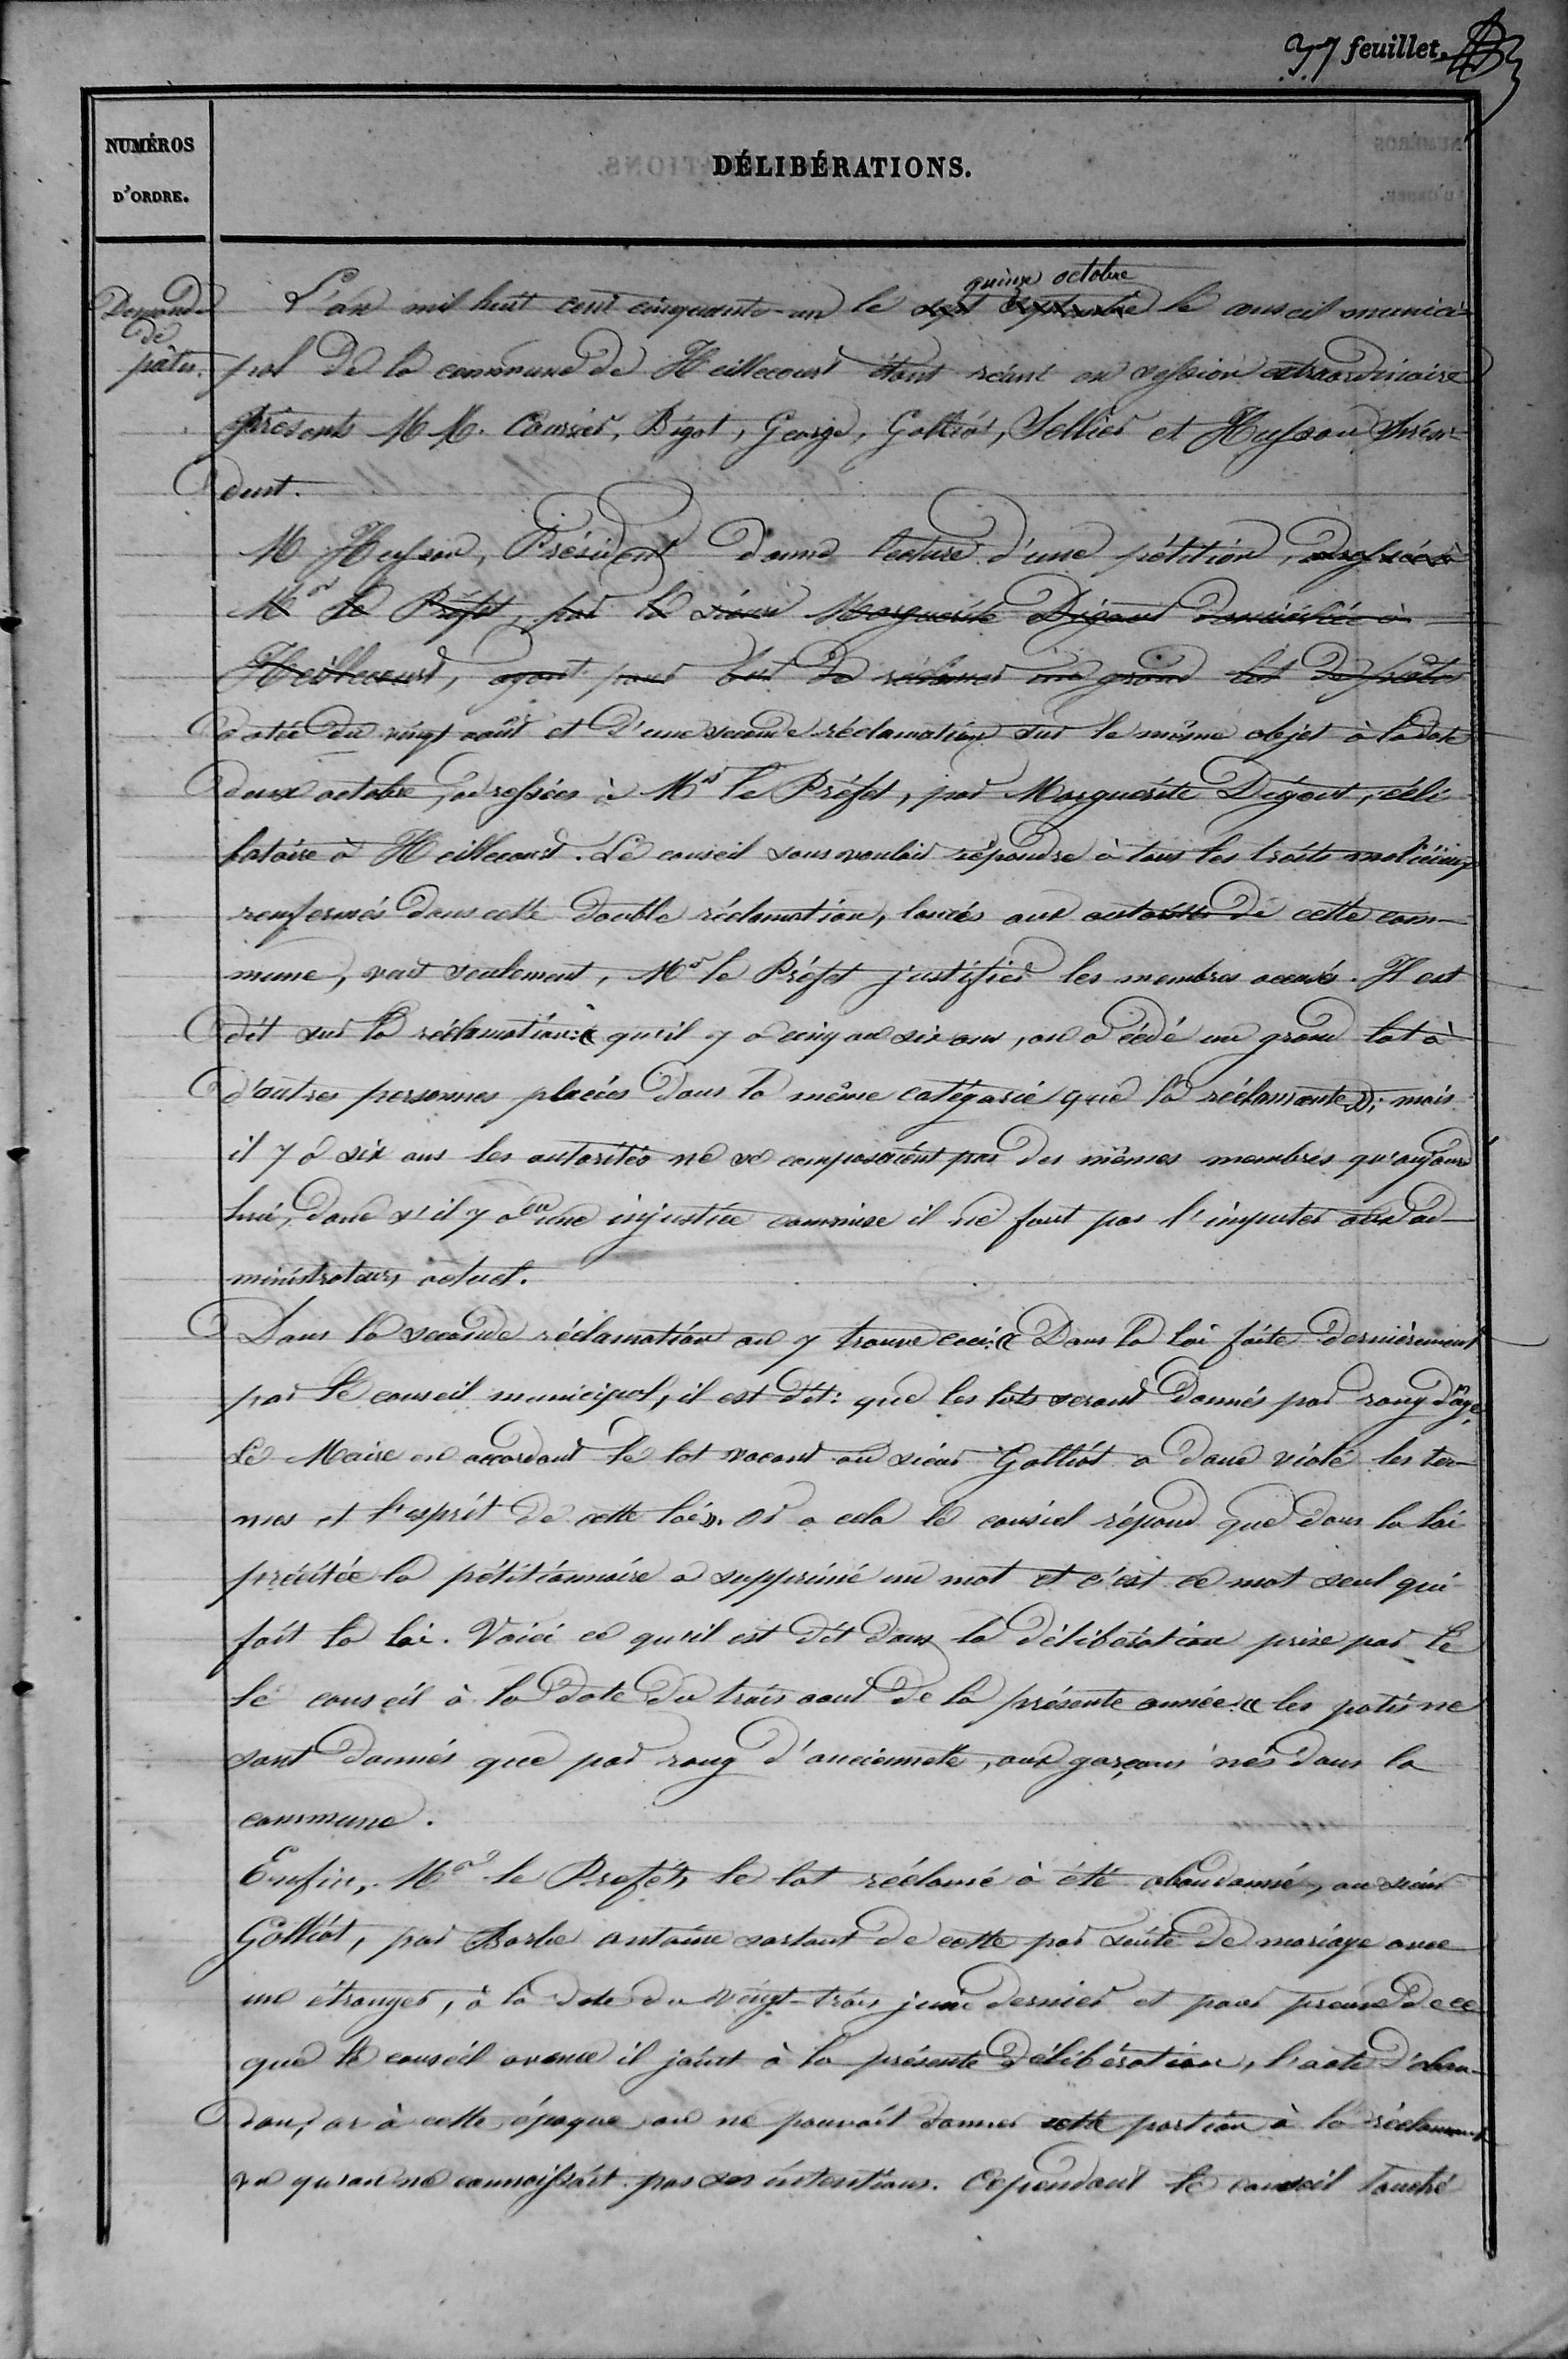 37 feuillet.
NUMÉROS
D'ORDRE.
DÉLIBÉRATIONS.
Demande
de
pâtis.
quinze octobre
L'an mil huit cent cinquante-un le sept septembre le conseil munici-
pal de la commune de Heillecourt étant réuni en session extraordinaire
présents MM. Courrier, Bigot, George, Golliot, Sellier et Husson Prési-
dent.
M Husson, Président donne lecture d'une pétition, adressée à
Mr le Préfet, par la Marguerite Digout domiciliée à
Heillecourt, ayant pour but de réclamer un grand lot de pâtis
datée du vingt août et d'une seconde réclamation sur le même objet à la date
deux octobre, adressées à Mr le Préfet, par Marguerite Digout, céli-
bataire à Heillecourt. Le conseil sans vouloir répondre à tous les traits malicieux
renfermés dans cette double réclamation, lancés aux autorités de cette com-
mune, veut seulement, Mr le Préfet justifier les membres accusés. Il est
dit sur la réclamation: « qu'il y a cinq ou six ans, on a cédé un grand lot à
d'autres personnes placées dans la même catégorie que la réclamante »; mais
il y a six ans les autorités ne se composaient pas des mêmes membres qu'aujourd'
hui, donc s'il y a eu une injustice commise il ne faut pas l'imputer aux ad-
ministrateurs actuel.
Dans la seconde réclamation on y trouve ceci: « Dans la loi faite dernièrement
par le conseil municipal, il est dit: que les lots seront donnés par rang d'âge.
Le Maire en accordant le lot vacant au sieur Golliot a donc violé les ter-
mes et l'esprit de cette loi ». Or a cela le conseil répond que dans la loi
précitée la pétitionnaire a supprimé un mot et c'est ce mot seul qui
fait la loi. Voici ce qu'il est dit dans la délibération prise par le
le conseil à la date du trois aout de la présente année: « les patis ne
sont donnés que par rang d'ancienneté, aux garçons nés dans la
commune.
Enfin, Mr le Prefet, le lot réclamé à été abandonné, au sieur
Golliot, par Barbe Antoine sortant de cette par suite de mariage avec
un étranger, à la date du vingt-trois juin dernier et pour preuve de ce
que le conseil avance il joint à la présente délibération, l'acte d'aban-
don, or à cette époque on ne pouvait donner cette portion à la réclamante
vu qu'on ne connaissait pas ses intentions. Cependant le conseil touché